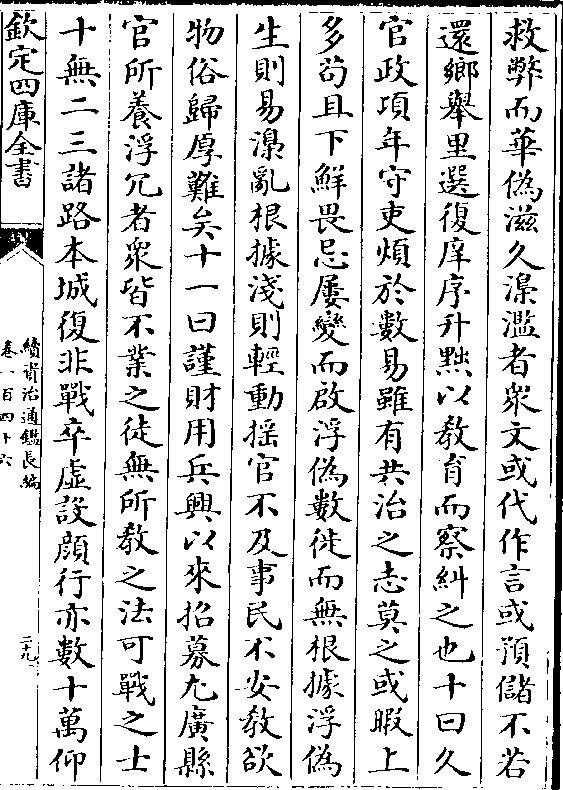 救弊而華偽滋久濫者衆文或代作言或預儲不若
還鄉舉里選復庠序升黜以教育而察糾之也十曰久
官政項年守吏煩於數易雖有共治之志莫之或暇上
多茍且下鮮畏忌屢變而啟浮偽數徙而無根據浮偽
生則易淆亂根據淺則輕動揺官不及事民不安教欲
物俗歸厚難矣十一曰謹財用兵興以來招募尤廣縣
官所養浮冗者衆皆不業之徒無所教之法可戰之士
十無二三諸路本城復非戰卒虚設顔行亦數十萬仰
欽定四庫全書
續資治通鑑長編
卷一百四十六
二十九